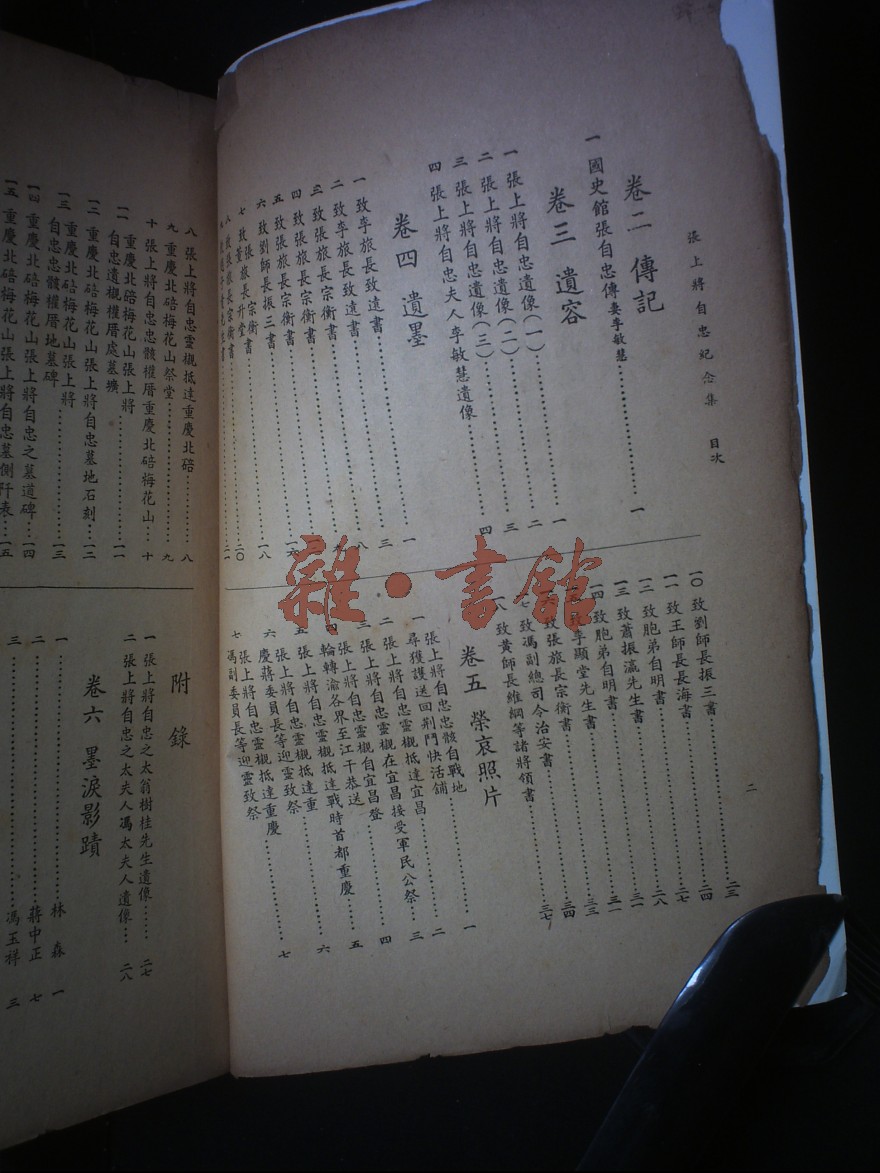 張上將自忠紀念集 目次
二
卷二 傳記
一 國史館張自忠傳 妻李敏慧 一
卷三 遺容
一 張上將自忠遺像(一) 一
二 張上將自忠遺像(二) 二
三 張上將自忠遺像(三) 三
四 張上將自忠夫人李敏慧遺像 四
卷四 遺墨
一 致李旅長致遠書 一
二 致李旅長致遠書 三
三 致張旅長宗衡書 八
四 致張旅長宗衡書 九
五 致張旅長宗衡書
六 致劉師長振三書 一六
七 致張旅長宗衡書 一八
致董旅長升堂
八 致張旅長宗衡書 二〇
二一
一〇 致劉師長振三書 二三
一一 致王師長長海書 二四
一二 致胞弟自明書 二七
一三 致蕭振瀛先生書 二八
一四 致胞弟自明書 三一
致李顯堂先生書 三三
致張旅長宗衡書 三四
致馮副總司令治安書
一八 致黃師長維綱等諸將領書 三七
卷五 榮哀照片
一 張上將自忠忠骸自戰地
尋獲護送回荆門快活舖 一
二 張上將自忠靈櫬抵達宜昌 二
三 張上將自忠靈櫬在宜昌接受軍民公祭 三
四 張上將自忠靈櫬自宜昌登
輪轉渝各界至江干恭送 四
五 張上將自忠靈櫬抵達戰時首都重慶 五
張上將自忠靈櫬抵達重
慶蔣委員長等迎靈致祭 六
七 張上將自忠靈櫬抵達重慶
馮副委員長等迎靈致祭 七
八 張上將自忠靈櫬抵達重慶北碚 八
九 重慶北碚梅花山祭堂 九
十 張上將自忠忠骸權厝重慶北碚梅花山 十
一一 重慶北碚梅花山張上將
自忠遺櫬權厝處墓壙 一一
一二 重慶北碚梅花山張上將自忠墓地石刻 一二
一三 重慶北碚梅花山張上將
自忠忠骸權厝地墓碑 一三
一四 重慶北碚梅花山張上將自忠之墓道碑 一四
一五 重慶北碚梅花山張上將自忠墓側阡表 一五
附錄
一 張上將自忠之太翁樹桂先生遺像 二七
二 張上將自忠之太夫人馮太夫人遺像 二八
卷六 墨淚影蹟
一 林森 一
二 蔣中正 七
三 馮玉祥 三
雜·書館